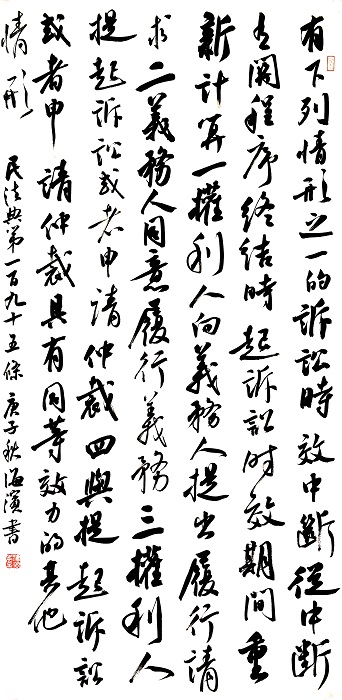 有下列情形之一的訴訟時效中斷從中斷
有關程序終結時起訴訟时效期間重
新計算一權利人向義務人提出履行請
求二義務人同意履行義務三權利人
提起訴訟或者申請仲裁四與提起訴訟
或者申請仲裁具有同等效力的其他
情形 民法典第一百九十五條 庚子秋海濱書